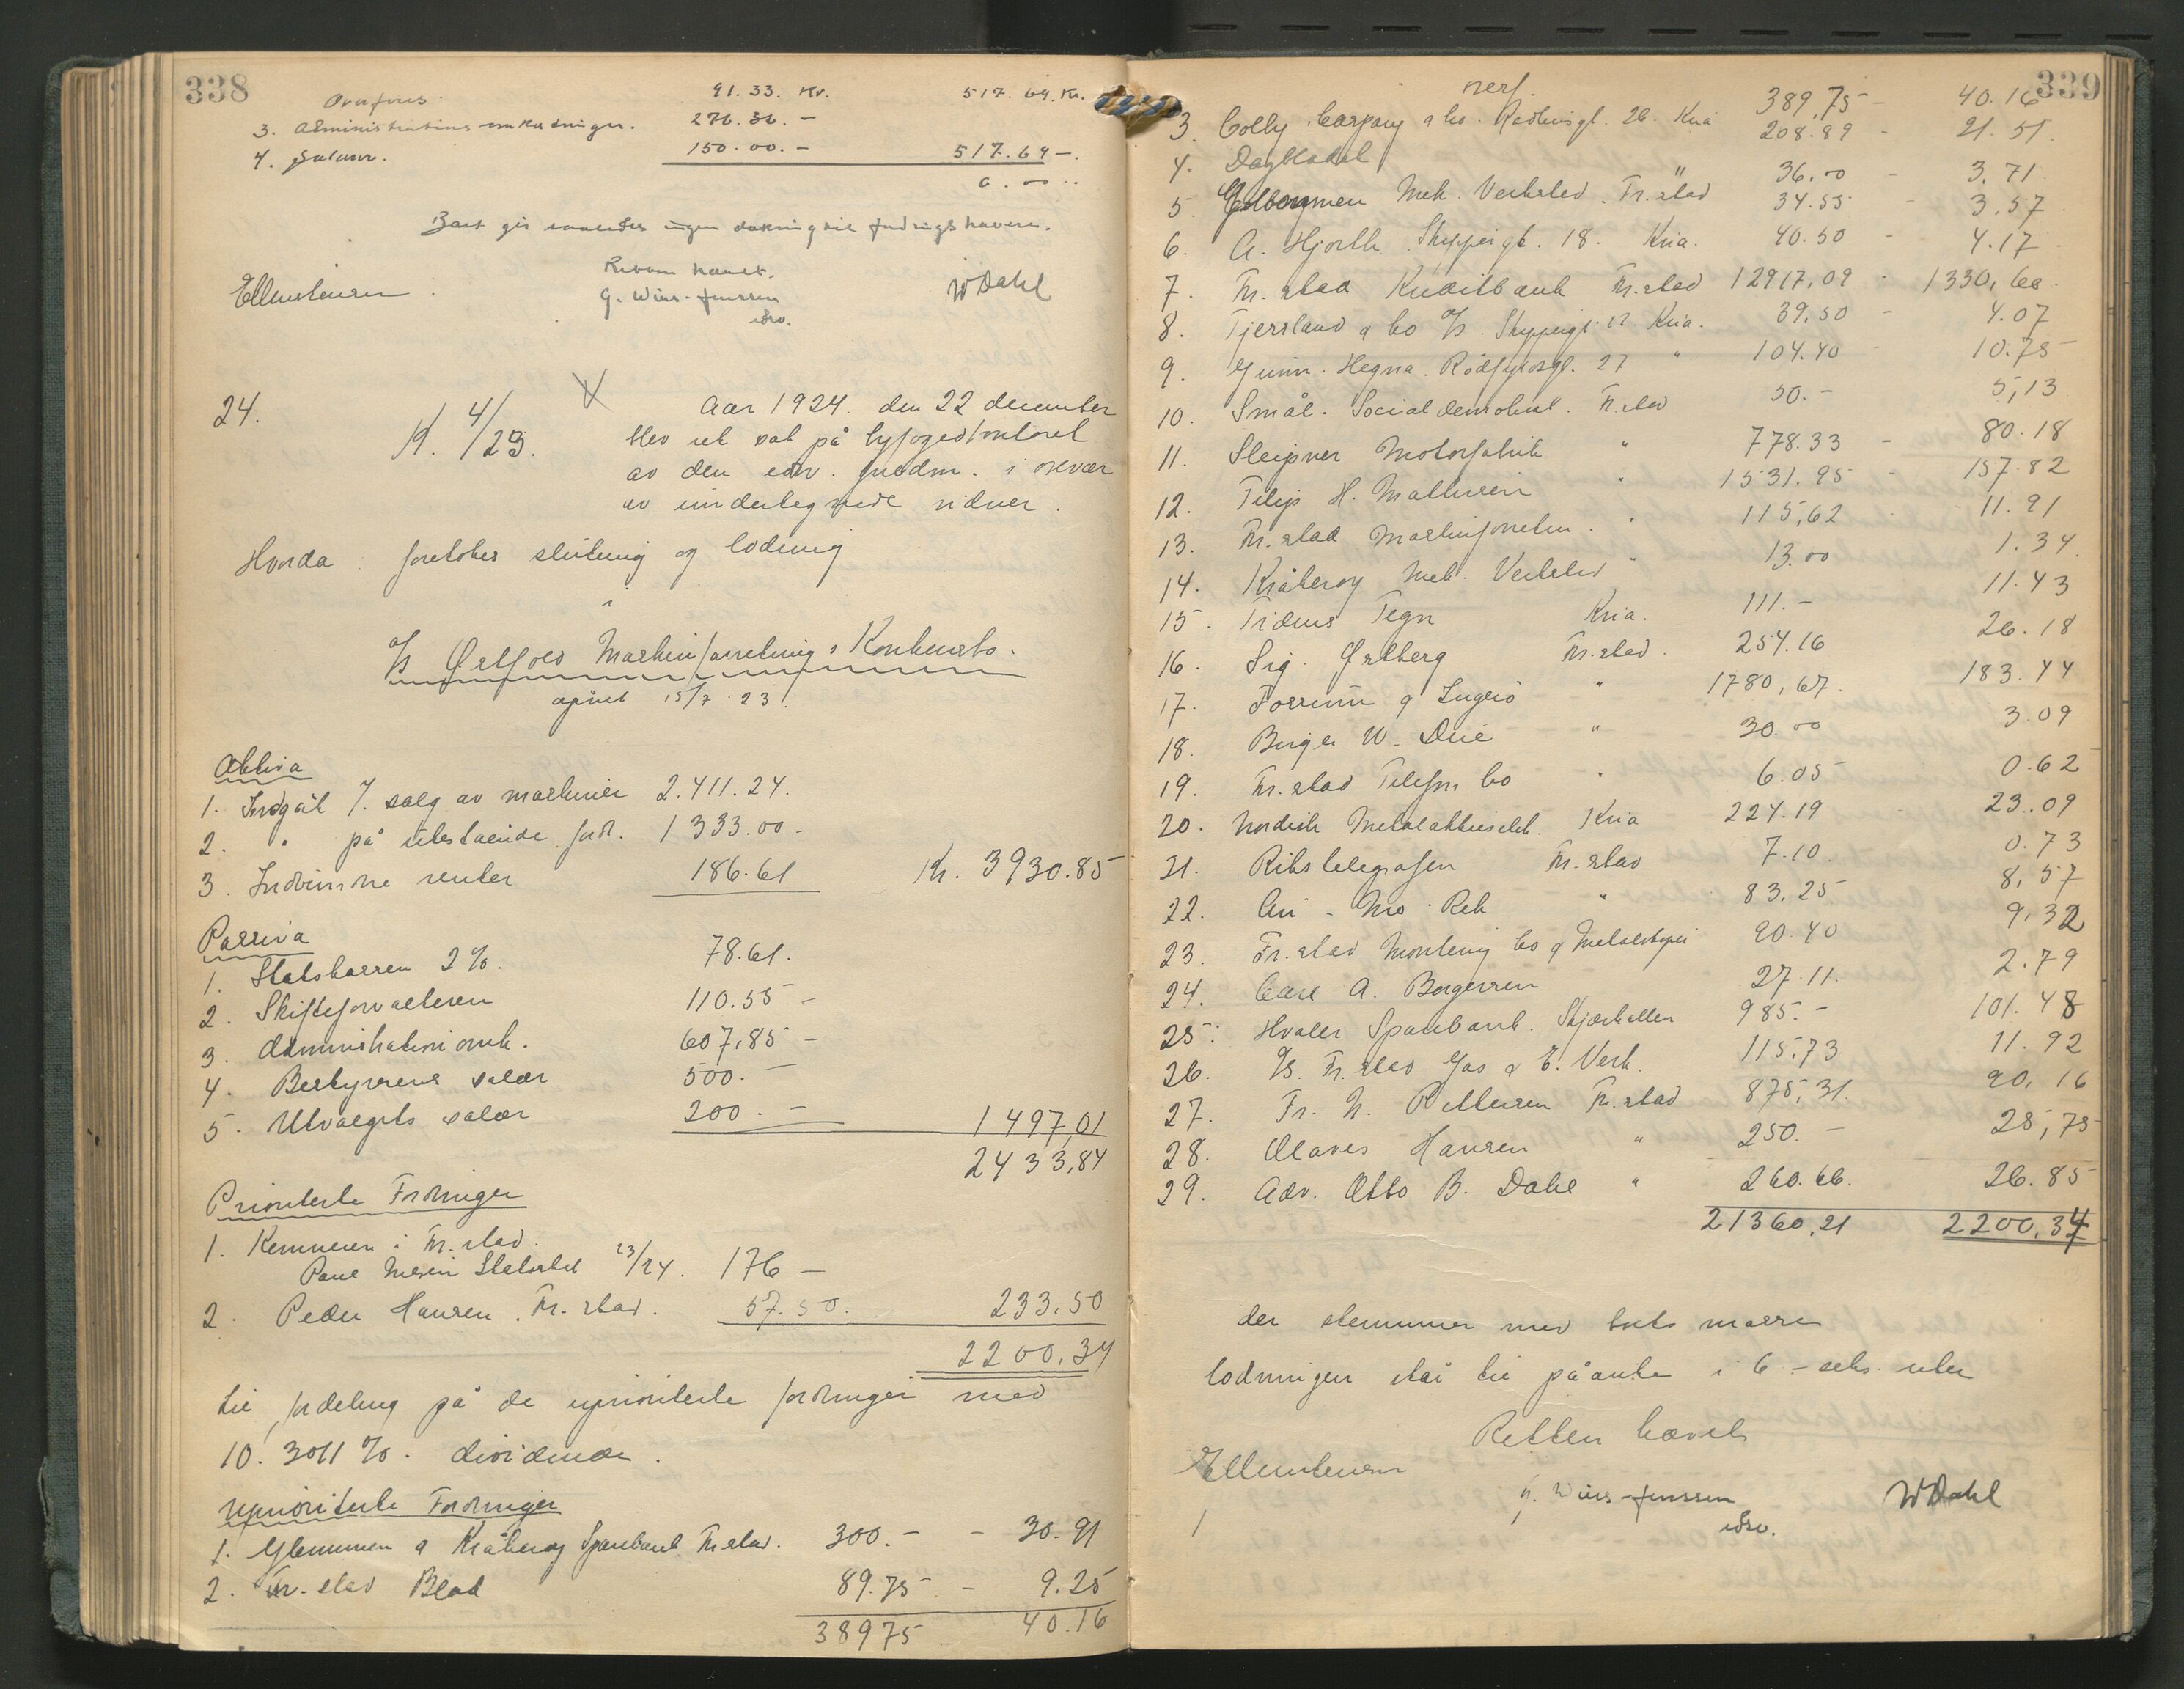 338
Overført 91.33. Kr. 517.69. Kr.
3. Administrations omkostninger. 276.36.-
4. Salærer. 150.00.- 517.69-.
0.00..
Boet gir saaledes ingen dækning til fordringshavere.
Retten hævet.
Ellenstensen G. Wiers-Jenssen WDahl
edsv.
24. K. 4/23.
Aar 1924. den 22 december
blev ret sat på byfogedkontoret
av den edsv. fuldm. i nærvær
av undertegnede vidner.
Hvorda foretokes slutning og lodning
i
A/S Østfold Maskinforretnings Konkursbo.
åpnet 15/7.23.
Aktiva
1. Indgåt v. salg av maskiner 2.411.24.
2. " på utestående ford. 1333.00-
3. Indvundne renter 186.61 Kr. 3930.85
Passiva
1. Statskassen 2%. 78.61.
2. Skifteforvalteren 110.55-
3. Administrationsomk. 607,85-
4. Bestyrerens salær 500.-
5. Utvalgets salær 200.- 1497,01
2433,84
Prioriterte Fordringer
1. Kemneren i Fr.stad.
23/24. 176-
2. Peder Hansen. Fr.stad. 57.50. 233.50
2200,34
til fordeling på de uprioriterte fordringer med
10.3011%. dividende.
Uprioriterte Fordringer
1. Glemmen & Kråkerøy Sparebank Fr.stad. 300.- - 30.91
2. Fr.stad Blad 89.75- - 9.25
38975 40.16
339
overf. 389,75- 40.16
3. Colly Company & Co. Rådhusgt. 26. Kria 208.89- 21.51.
4. Dagbladet " 36.00- 3.71
5. Mek. Verksted. Fr.stad 34.55- 3.57
6. A. Hjorth. Skippergt. 18. Kria. 40.50- 4.17
7. Fr.stad Kreditbank Fr.stad 12917,09- 1330,60.
8. Tjersland & Co A/S. Skippergt. Kria. 39.50- 4.07
9. Gunn. Hegna. Rådhusgt. 27 " 104.40 10.75
10. Smål. Socialdemokrat. Fr.stad 50.- 5,13
11. Sleipner Motorfabrik " 778.33- 80.18
12. Filip H. Mathisen " 1531.95- 157.82
13. Fr.stad Maskinforretn. " 115,62 11.91
14. Kråkerøy Mek. Verksted " 13.00 1.34.
15. Tidens Tegn Kria. 111.- 11.43
16. Sig. Østberg Fr.stad. 254.16 26.18
17. " 1780,67. 183.44
18. Birger W. Due " 30.00 3.09
19. Fr.stad Telefon Co " 6.05 0.62
20. Nordisk Metalaktieselsk. Kria 224.19 23.09
21. Rikstelegrafen Fr.stad 7.10. 0.73
22. " 83.25 8,57
23. Fr.stad Montering Co & Metalstøperi 90.40 9,32
24. Carl A. Borgersen 27.11. 2.79
25. Hvaler Sparebank. Skjærhallen 985.- 101.48
26. A/S. Fr.stad Gas & E. Verk. 115,73 11.92
27. Fr. N. Pettersen Fr.stad 875,31. 90,16
28. Olaves Hansen " 250.- 25,75
29. Adv. Otto B. Dahl " 260.66. 26.85
21360,21 2200,34
der stemmer med boets masse
lodningen står til påanke i 6-seks uker
Retten hævet
Ellenstensen G. Wiers-Jenssen WDahl
edsv.